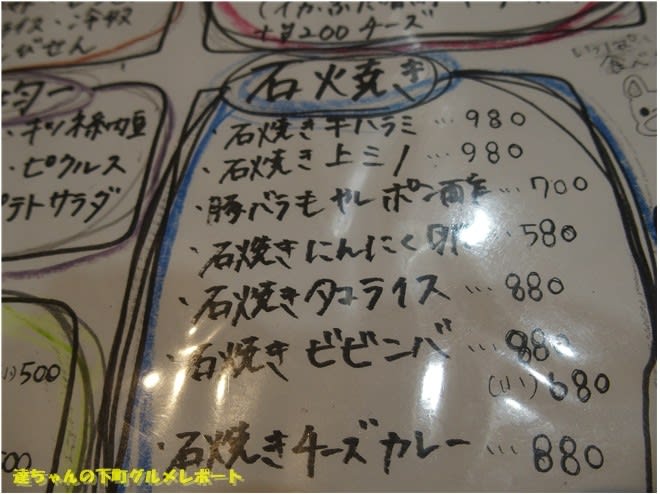 +¥200チーズ
石焼き
・石焼き牛ハラミ…980
・石焼き上ミノ…980
・豚バラもやしポン酢…700
・石焼きにんにく 580
・石焼きタコライス…880
・石焼きビビンバ…880
(小)680
・石焼きチーズカレー…880
・ピクルス
ポテトサラダ
500
達ちゃんの下町グルメレポート